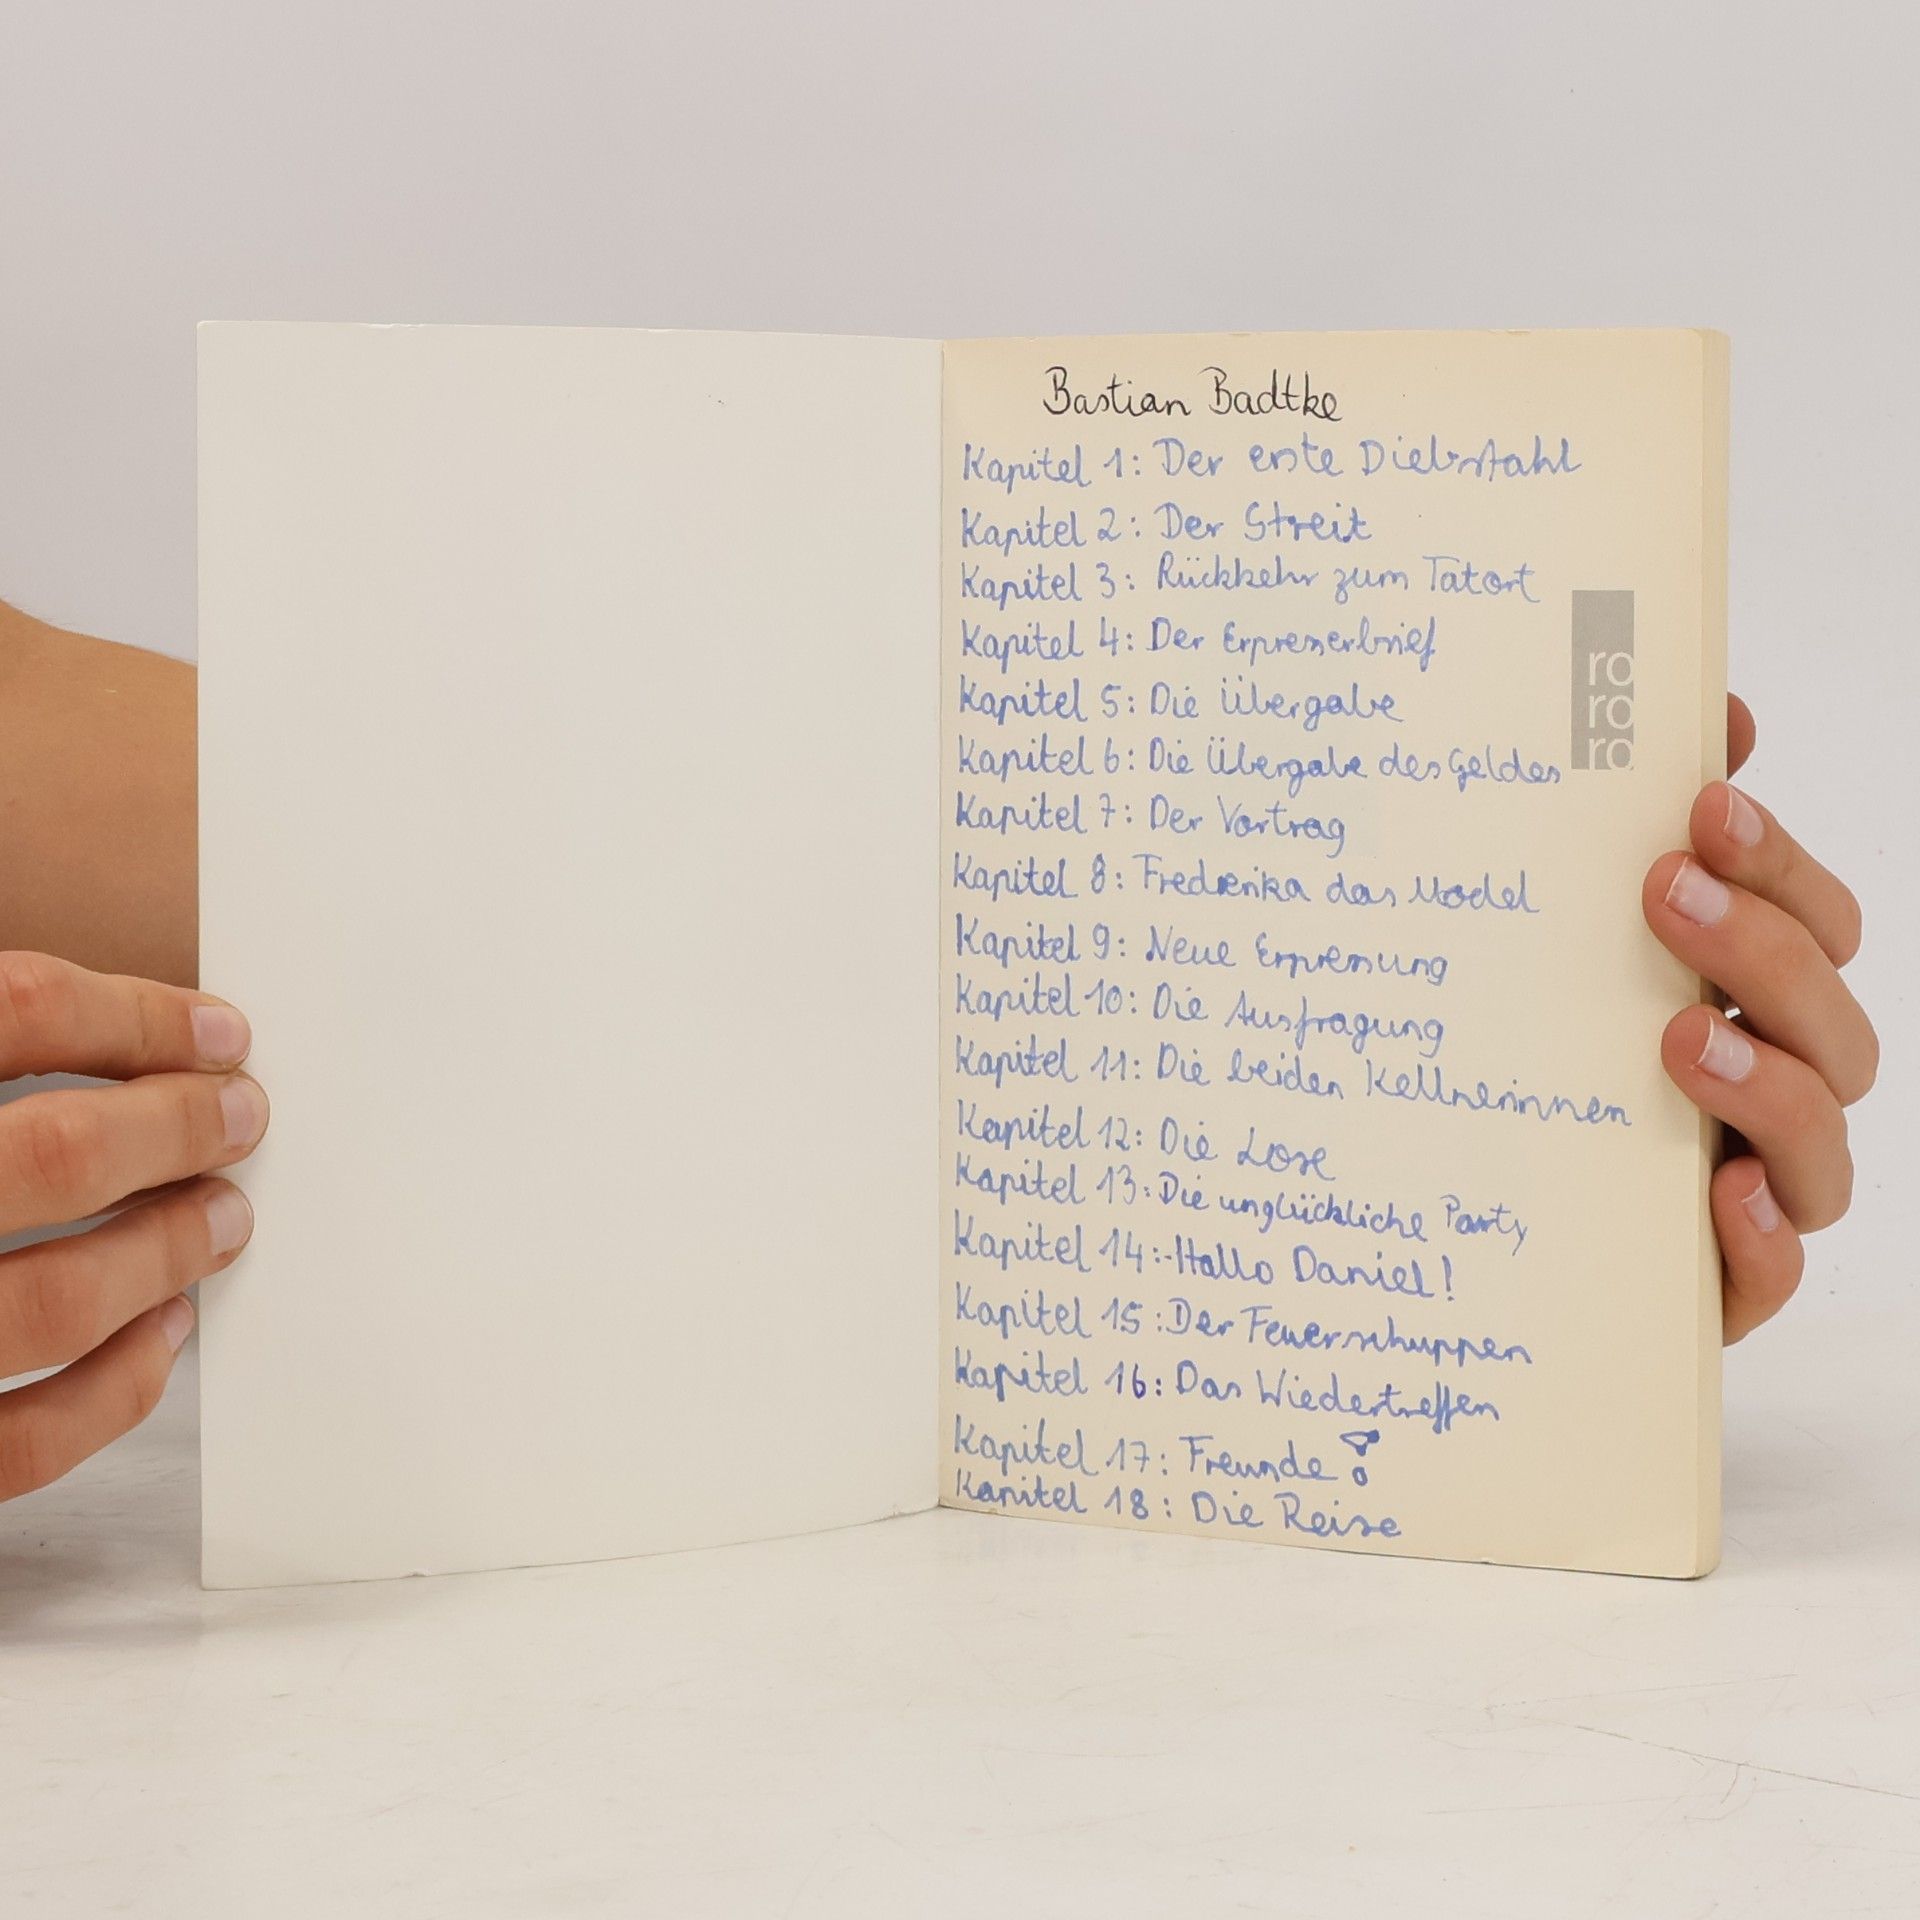 Bastian Badtke
Kapitel 1: Der erste Diebstahl
Kapitel 2: Der Streit
Kapitel 3: Rückkehr zum Tatort
Kapitel 4: Der Erpresserbrief
Kapitel 5: Die Übergabe
Kapitel 6: Die Übergabe des Geldes
Kapitel 7: Der Vortrag
Kapitel 8: Frederika das Model
Kapitel 9: Neue Erpressung
Kapitel 10: Die Ausfragung
Kapitel 11: Die beiden Kellnerinnen
Kapitel 12: Die Lose
Kapitel 13: Die unglückliche Party
Kapitel 14: Hallo Daniel!
Kapitel 15: Der Feuerschuppen
Kapitel 16: Das Wiedertreffen
Kapitel 17: Freunde!
Kapitel 18: Die Reise
ro
ro
ro